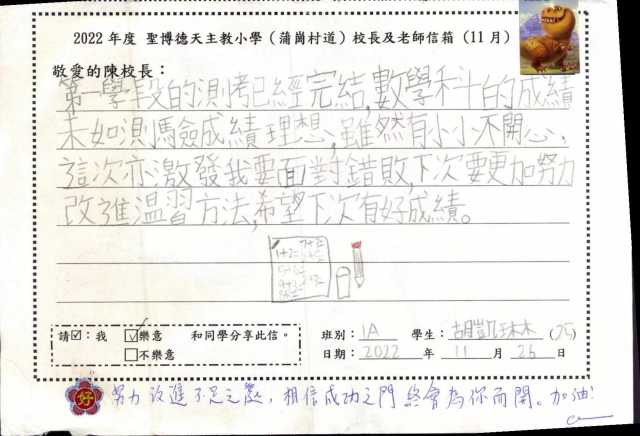 2022 年度 聖博德天主教小學（蒲崗村道）校長及老師信箱（11 月）
敬愛的陳校長：
第一學段的測考已經完結,數學科的成績
未如測驗成績理想,雖然有小小不開心,
這次亦激發我要面對錯敗,下次要更加努力
改進溫習方法,希望下次有好成績。
請☑：我 ☑樂意 和同學分享此信。
□不樂意
班別：1A 學生：胡凱琳 (25)
日期：2022 年 11 月 26 日
好 努力改進不足之處，相信成功之門終會為你而開。加油!